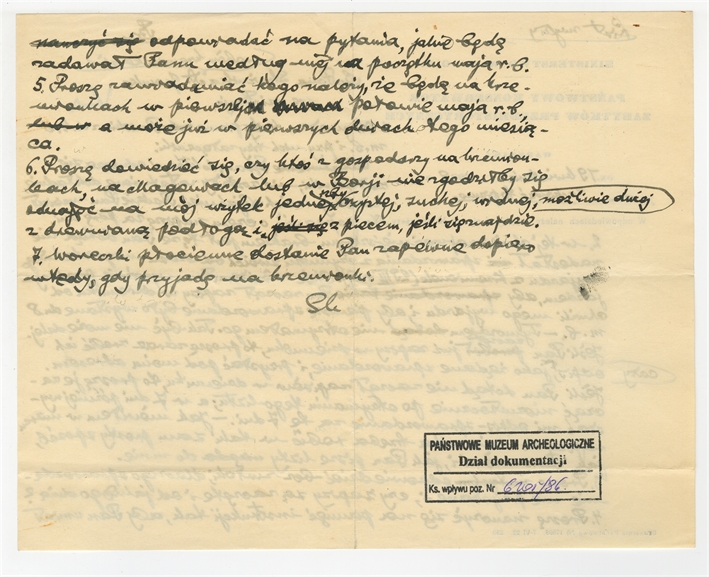 nauczyć się odpowiadać na pytania, jakie będę
zadawał Panu według niej na początku maja r.b.
5. Proszę zawiadomiać kogo należy, że będę na krze-
mionkach w pierwszej połowie maja r.b.,
lub w a może już w pierwszych dniach tego miesią-
ca.
6. Proszę dowiedzieć się, czy ktoś z gospodarzy na krzemion-
kach, na Magoniach lub w nie zgodziłby się
odnająć na mój użytek jednej izby czystej, suchej, widnej, możliwie dużej
z drewnianą podłogą i jeśli się z piecem, jeśli się znajdzie.
7. Woreczki płócienne dostanie Pan zapewne dopiero
wtedy, gdy przyjadę na krzemionki.
PAŃSTWOWE MUZEUM ARCHEOLOGICZNE
Dział dokumentacji
Ks. wpływu poz. Nr